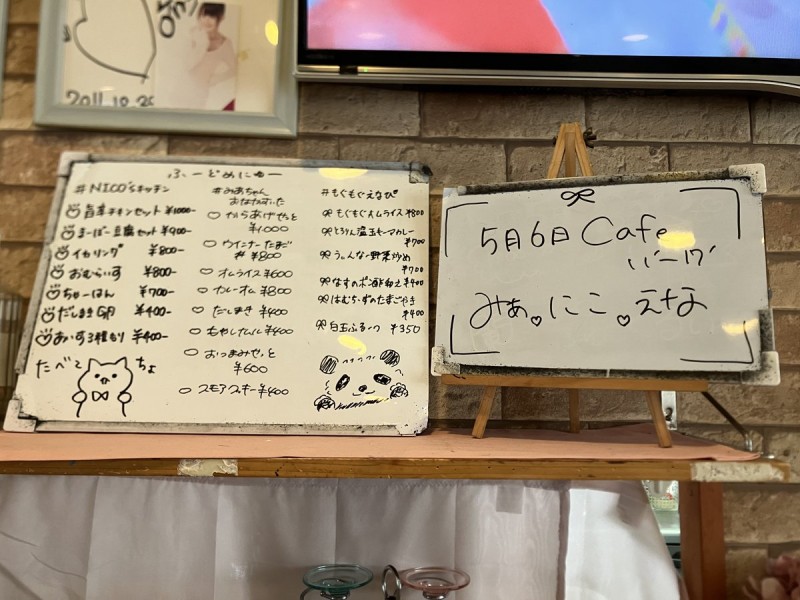 2011.10.25
ふーどめにゅー
#NICO'sキッチン
旨辛チキンセット ¥1000-
まーぼー豆腐セット ¥900-
イカリング ¥800-
おむらいす ¥800-
ちゃーはん ¥700-
だしまき ¥400-
あいす3種もり ¥400-
たべて
ちょ
#みあちゃん
おなかすいた
からあげせっと
¥1000
ウインナーたまご
丼 ¥800
オムライス ¥600
カレーオム ¥800
だしまき ¥400
もやしナムル ¥400
おつまみせっと
¥600
スモアスキー ¥400
#もぐもぐえなぴ
もぐもぐオムライス ¥800
とろりん温玉キーマカレー
¥700
うぃんなー野菜炒め
¥700
なすのポン酢和え ¥400
はむちーずのたまごやき
¥400
白玉ふるーつ ¥350
5月6日 Cafe
11-17
みぁ。にこ。えな